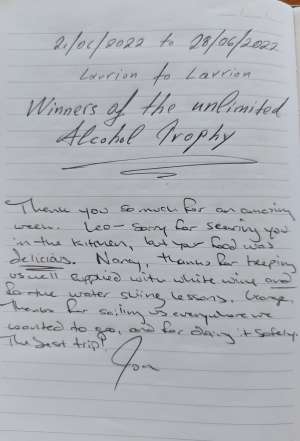 21/06/2022 to 28/06/2022
Lavrion to Lavrion
Winners of the unlimited
Alcohol Trophy
Thank you so much for an amazing
week. Leo - sorry for scaring you
in the kitchen, but your food was
delicious. Nancy, thanks for keeping
us well supplied with white wine and
for the water skiing lessons. George,
thanks for sailing us everywhere we
wanted to go, and for doing it safely.
The best trip!